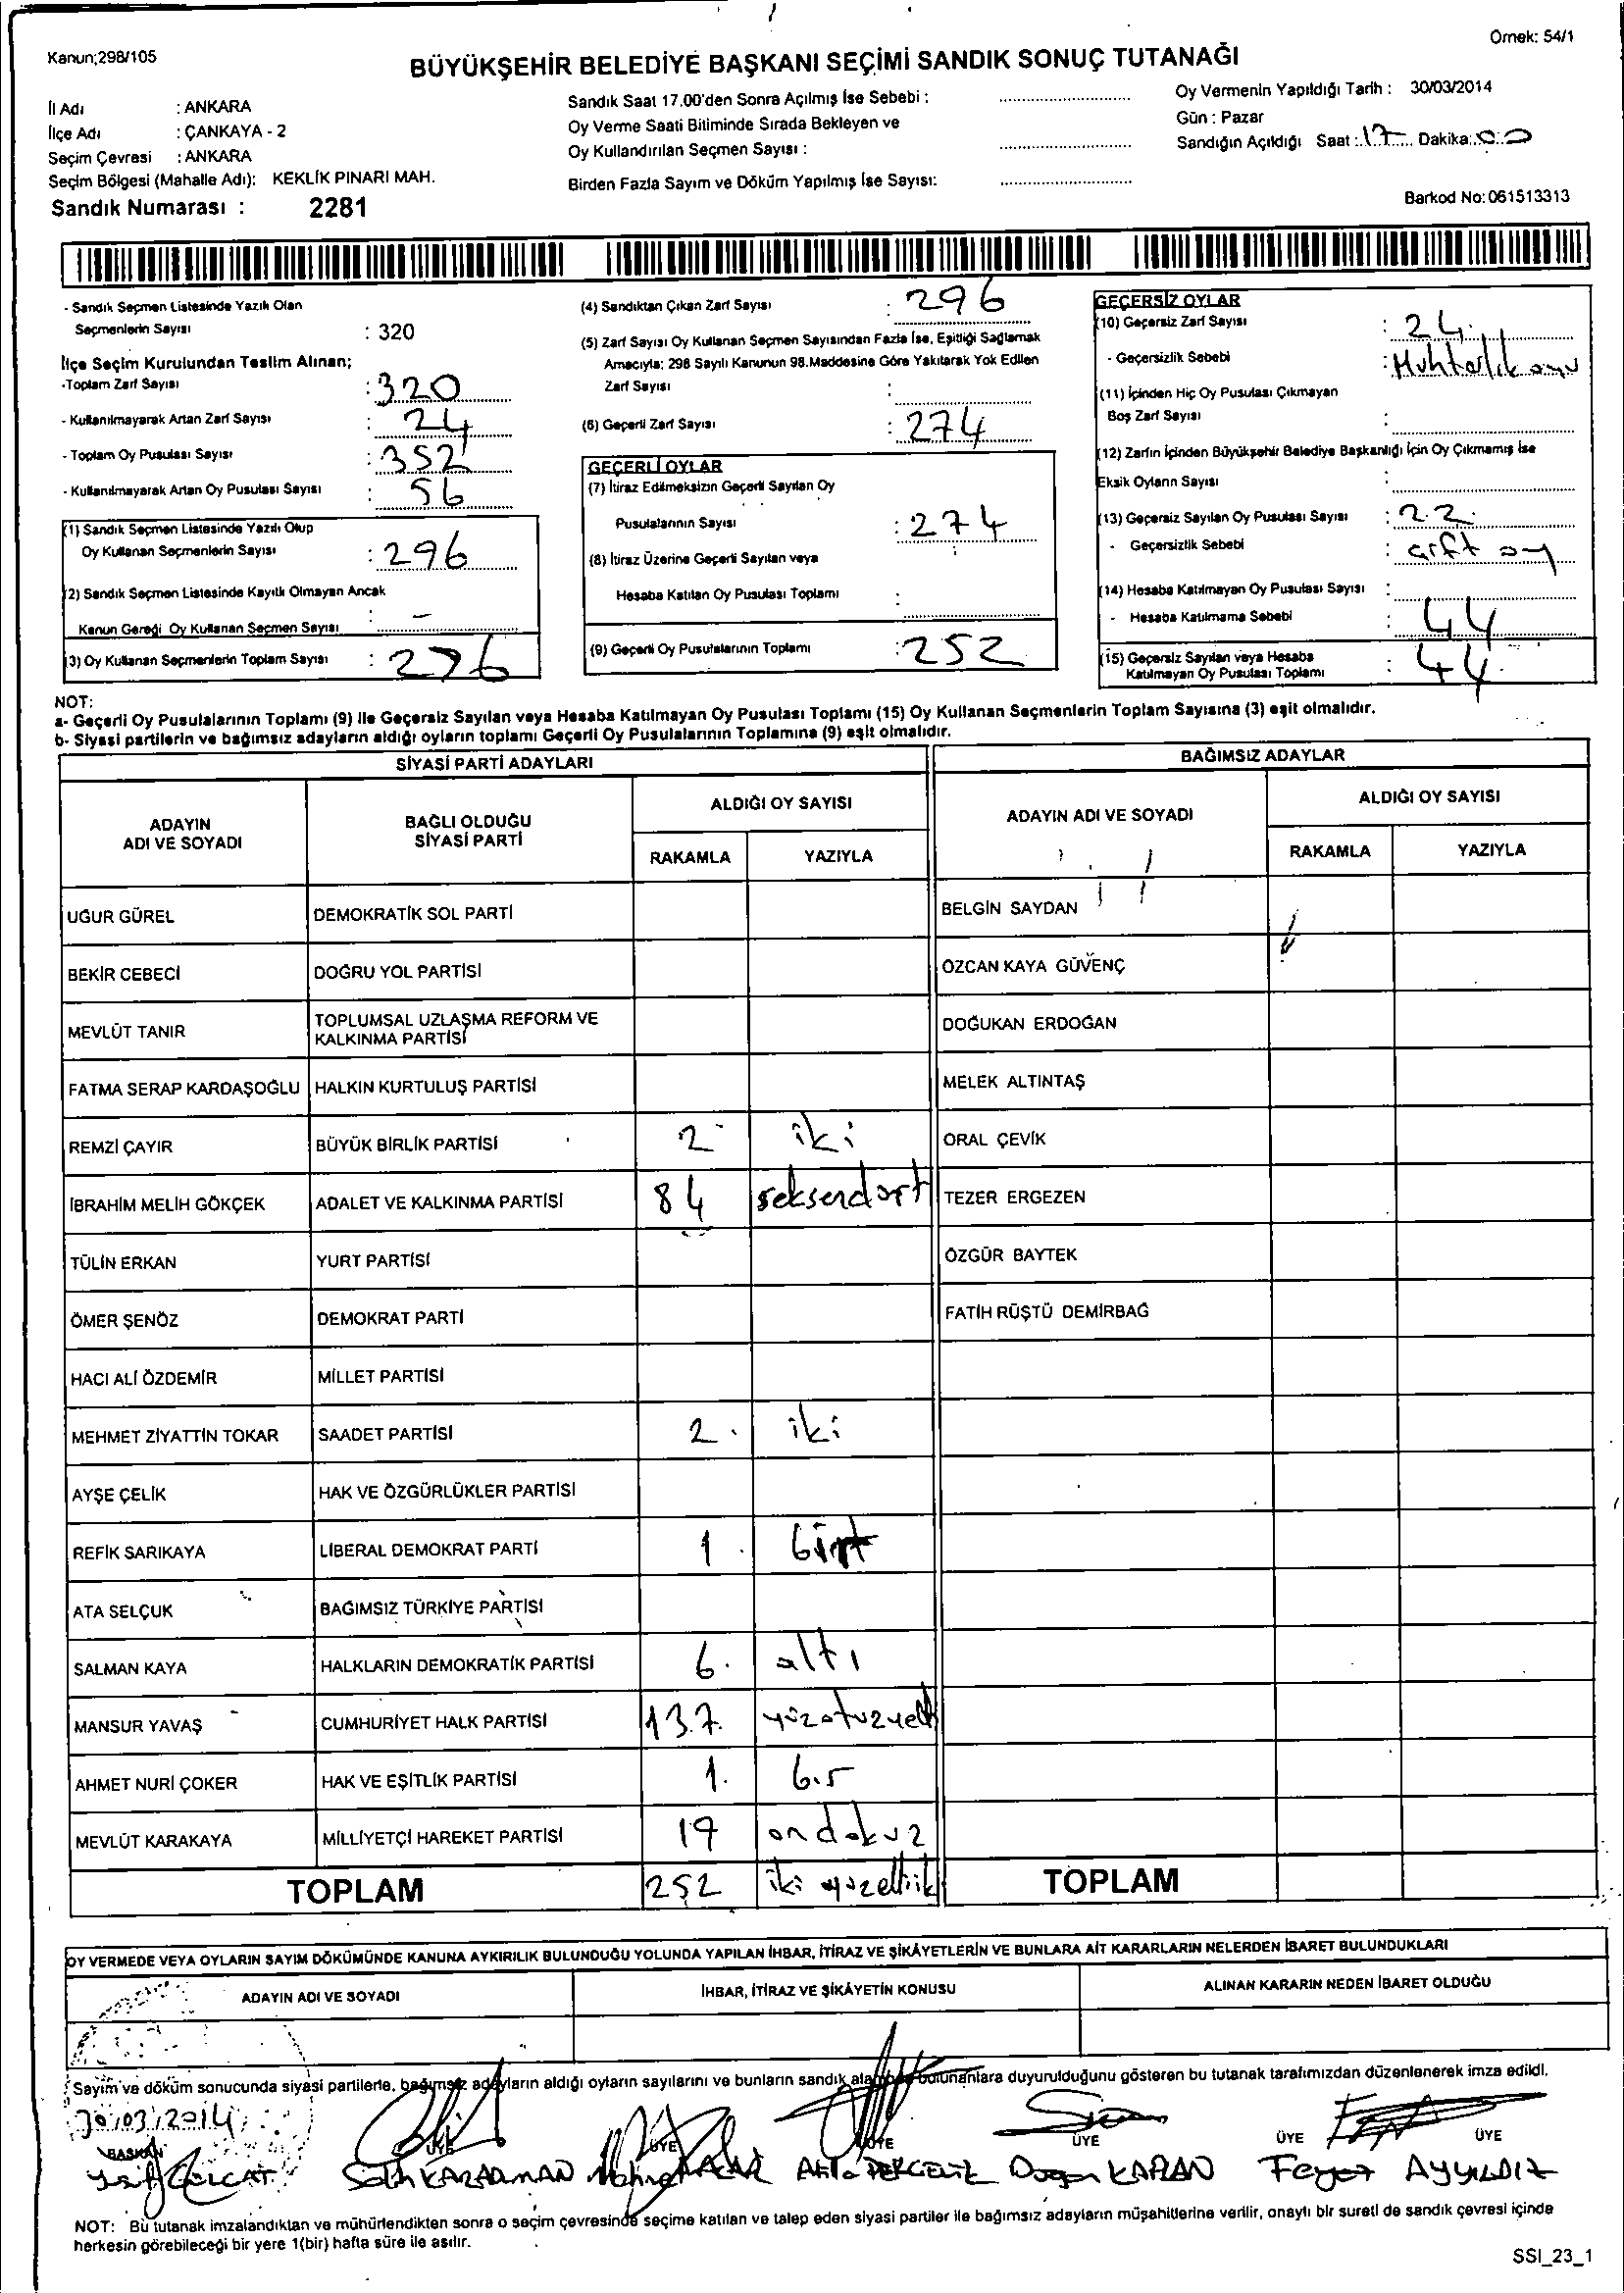 Örnek: 54/1
Kanun;298/105
BÜYÜKŞEHİR BELEDİYE BAŞKANI SEÇİMİ SANDIK SONUÇ TUTANAĞI
İl Adı : ANKARA
İlçe Adı : ÇANKAYA - 2
Seçim Çevresi : ANKARA
Seçim Bölgesi (Mahalle Adı): KEKLİK PINARI MAH.
Sandık Numarası : 2281
Sandık Saat 17.00'den Sonra Açılmış İse Sebebi :
Oy Verme Saati Bitiminde Sırada Bekleyen ve
Oy Kullandırılan Seçmen Sayısı :
Birden Fazla Sayım ve Döküm Yapılmış İse Sayısı:
Oy Vermenin Yapıldığı Tarih : 30/03/2014
Gün : Pazar
Sandığın Açıldığı Saat : 17 Dakika: 00
Barkod No: 061513313
- Sandık Seçmen Listesinde Yazılı Olan
Seçmenlerin Sayısı : 320
İlçe Seçim Kurulundan Teslim Alınan;
-Toplam Zarf Sayısı : 320
- Kullanılmayarak Artan Zarf Sayısı : 24
- Toplam Oy Pusulası Sayısı : 352
- Kullanılmayarak Artan Oy Pusulası Sayısı : 56
(1) Sandık Seçmen Listesinde Yazılı Olup
Oy Kullanan Seçmenlerin Sayısı : 296
(2) Sandık Seçmen Listesinde Kayıtlı Olmayan Ancak
Kanun Gereği Oy Kullanan Seçmen Sayısı : -
(3) Oy Kullanan Seçmenlerin Toplam Sayısı : 296
(4) Sandıktan Çıkan Zarf Sayısı : 296
(5) Zarf Sayısı Oy Kullanan Seçmen Sayısından Fazla İse, Eşitliği Sağlamak
Amacıyla; 298 Sayılı Kanunun 98.Maddesine Göre Yakılarak Yok Edilen
Zarf Sayısı :
(6) Geçerli Zarf Sayısı : 274
GEÇERLİ OYLAR
(7) İtiraz Edilmeksizin Geçerli Sayılan Oy
Pusulalarının Sayısı : 274
(8) İtiraz Üzerine Geçerli Sayılan veya
Hesaba Katılan Oy Pusulası Toplamı :
(9) Geçerli Oy Pusulalarının Toplamı : 252
GEÇERSİZ OYLAR
(10) Geçersiz Zarf Sayısı : 24
- Geçersizlik Sebebi : Muhtarlık oyu
(11) İçinden Hiç Oy Pusulası Çıkmayan
Boş Zarf Sayısı :
(12) Zarfın İçinden Büyükşehir Belediye Başkanlığı İçin Oy Çıkmamış İse
Eksik Oyların Sayısı :
(13) Geçersiz Sayılan Oy Pusulası Sayısı : 22
- Geçersizlik Sebebi : çift oy
(14) Hesaba Katılmayan Oy Pusulası Sayısı :
- Hesaba Katılmama Sebebi : 44
(15) Geçersiz Sayılan veya Hesaba
Katılmayan Oy Pusulası Toplamı : 44
NOT:
a- Geçerli Oy Pusulalarının Toplamı (9) ile Geçersiz Sayılan veya Hesaba Katılmayan Oy Pusulası Toplamı (15) Oy Kullanan Seçmenlerin Toplam Sayısına (3) eşit olmalıdır.
b- Siyasi partilerin ve bağımsız adayların aldığı oyların toplamı Geçerli Oy Pusulalarının Toplamına (9) eşit olmalıdır.
SİYASİ PARTİ ADAYLARI
ADAYIN ADI VE SOYADI
BAĞLI OLDUĞU SİYASİ PARTİ
ALDIĞI OY SAYISI
RAKAMLA YAZIYLA
UĞUR GÜREL DEMOKRATİK SOL PARTİ
BEKİR CEBECİ DOĞRU YOL PARTİSİ
MEVLÜT TANIR TOPLUMSAL UZLAŞMA REFORM VE KALKINMA PARTİSİ
FATMA SERAP KARDAŞOĞLU HALKIN KURTULUŞ PARTİSİ
REMZİ ÇAYIR BÜYÜK BİRLİK PARTİSİ 2 iki
İBRAHİM MELİH GÖKÇEK ADALET VE KALKINMA PARTİSİ 84 seksendört
TÜLİN ERKAN YURT PARTİSİ
ÖMER ŞENÖZ DEMOKRAT PARTİ
HACI ALİ ÖZDEMİR MİLLET PARTİSİ
MEHMET ZİYATTİN TOKAR SAADET PARTİSİ 2 iki
AYŞE ÇELİK HAK VE ÖZGÜRLÜKLER PARTİSİ
REFİK SARIKAYA LİBERAL DEMOKRAT PARTİ 1 bir
ATA SELÇUK BAĞIMSIZ TÜRKİYE PARTİSİ
SALMAN KAYA HALKLARIN DEMOKRATİK PARTİSİ 6 altı
MANSUR YAVAŞ CUMHURİYET HALK PARTİSİ 137 yüzotuzyedi
AHMET NURİ ÇOKER HAK VE EŞİTLİK PARTİSİ 1 bir
MEVLÜT KARAKAYA MİLLİYETÇİ HAREKET PARTİSİ 19 ondokuz
TOPLAM 252 iki yüzelliiki
BAĞIMSIZ ADAYLAR
ADAYIN ADI VE SOYADI
ALDIĞI OY SAYISI
RAKAMLA YAZIYLA
BELGİN SAYDAN
ÖZCAN KAYA GÜVENÇ
DOĞUKAN ERDOĞAN
MELEK ALTINTAŞ
ORAL ÇEVİK
TEZER ERGEZEN
ÖZGÜR BAYTEK
FATİH RÜŞTÜ DEMİRBAĞ
TOPLAM
OY VERMEDE VEYA OYLARIN SAYIM DÖKÜMÜNDE KANUNA AYKIRILIK BULUNDUĞU YOLUNDA YAPILAN İHBAR, İTİRAZ VE ŞİKÂYETLERİN VE BUNLARA AİT KARARLARIN NELERDEN İBARET BULUNDUKLARI
ADAYIN ADI VE SOYADI
İHBAR, İTİRAZ VE ŞİKÂYETİN KONUSU
ALINAN KARARIN NEDEN İBARET OLDUĞU
Sayım ve döküm sonucunda siyasi partilerle, bağımsız adayların aldığı oyların sayılarını ve bunların sandık bulunanlara duyurulduğunu gösteren bu tutanak tarafımızdan düzenlenerek imza edildi.
30/03/2014
BAŞKAN ÜYE ÜYE ÜYE ÜYE ÜYE ÜYE
Salih KARAMAN Mehmet ACAR Atila Dogan KAPLAN AYYILDIZ
NOT: Bu tutanak imzalandıktan ve mühürlendikten sonra o seçim çevresinde seçime katılan ve talep eden siyasi partiler ile bağımsız adayların müşahitlerine verilir, onaylı bir sureti de sandık çevresi içinde
herkesin görebileceği bir yere 1(bir) hafta süre ile asılır.
SSI_23_1